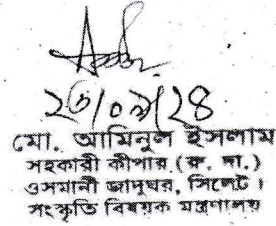 ২৩/০৯/২৪
মো. আমিনুল ইসলাম
সহকারী কীপার (রু. দা.)
ওসমানী জাদুঘর, সিলেট।
সংস্কৃতি বিষয়ক মন্ত্রণালয়